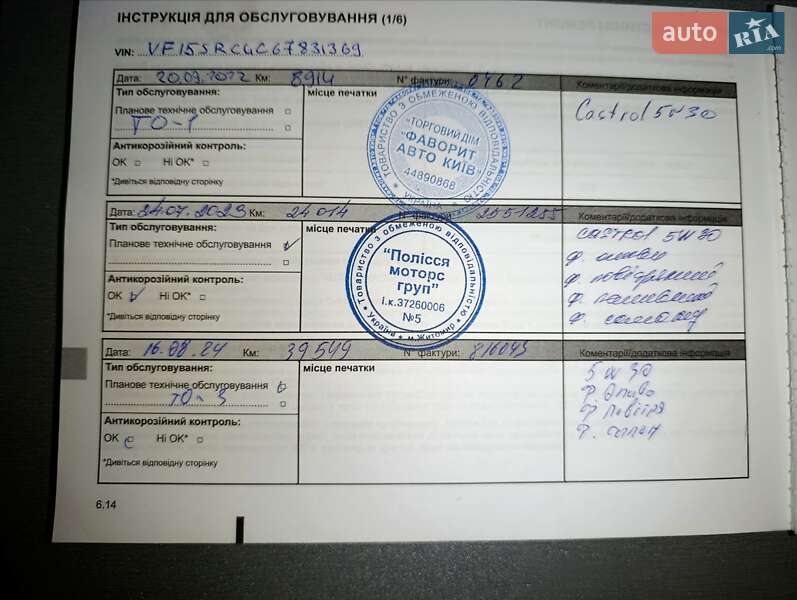 ІНСТРУКЦІЯ ДЛЯ ОБСЛУГОВУВАННЯ (1/6)
auto RIA .com
VIN: VF15SRC4C67831369
Дата: 20.09.2022 Км: 8914 N° фактури: 0462 Коментарі/додаткова інформація
Тип обслуговування: місце печатки
Планове технічне обслуговування
ТО-1
Castrol 5W30
Антикорозійний контроль:
ОК Ні ОК*
*Дивіться відповідну сторінку
Товариство з обмеженою відповідальністю
"ТОРГОВИЙ ДІМ
"ФАВОРИТ
АВТО КИЇВ"
44890868
* УКРАЇНА *
Дата: 24.07.2023 Км: 24014 N° фактури: 2551255 Коментарі/додаткова інформація
Тип обслуговування: місце печатки
Планове технічне обслуговування
Castrol 5W30
ф.
ф. повітряний
ф. паливний
ф. салону
Антикорозійний контроль:
ОК Ні ОК*
*Дивіться відповідну сторінку
Товариство з обмеженою відповідальністю
"Полісся
моторс
груп"
і.к.37260006
№5
* Україна * м.Житомир *
Дата: 16.08.24 Км: 39549 N° фактури: 816043 Коментарі/додаткова інформація
Тип обслуговування: місце печатки
Планове технічне обслуговування
ТО-3
5W30
ф.
ф. повітря
ф. салон
Антикорозійний контроль:
ОК Ні ОК*
*Дивіться відповідну сторінку
6.14